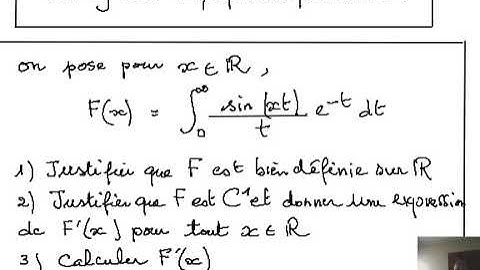 on pose pour x ∈ ℝ,
F(x) = ∫₀^∞ sin(xt)/t e^-t dt
1) Justifier que F est bien définie sur ℝ
2) Justifier que F est C¹ et donner une expression
de F'(x) pour tout x ∈ ℝ
3) Calculer F'(x)